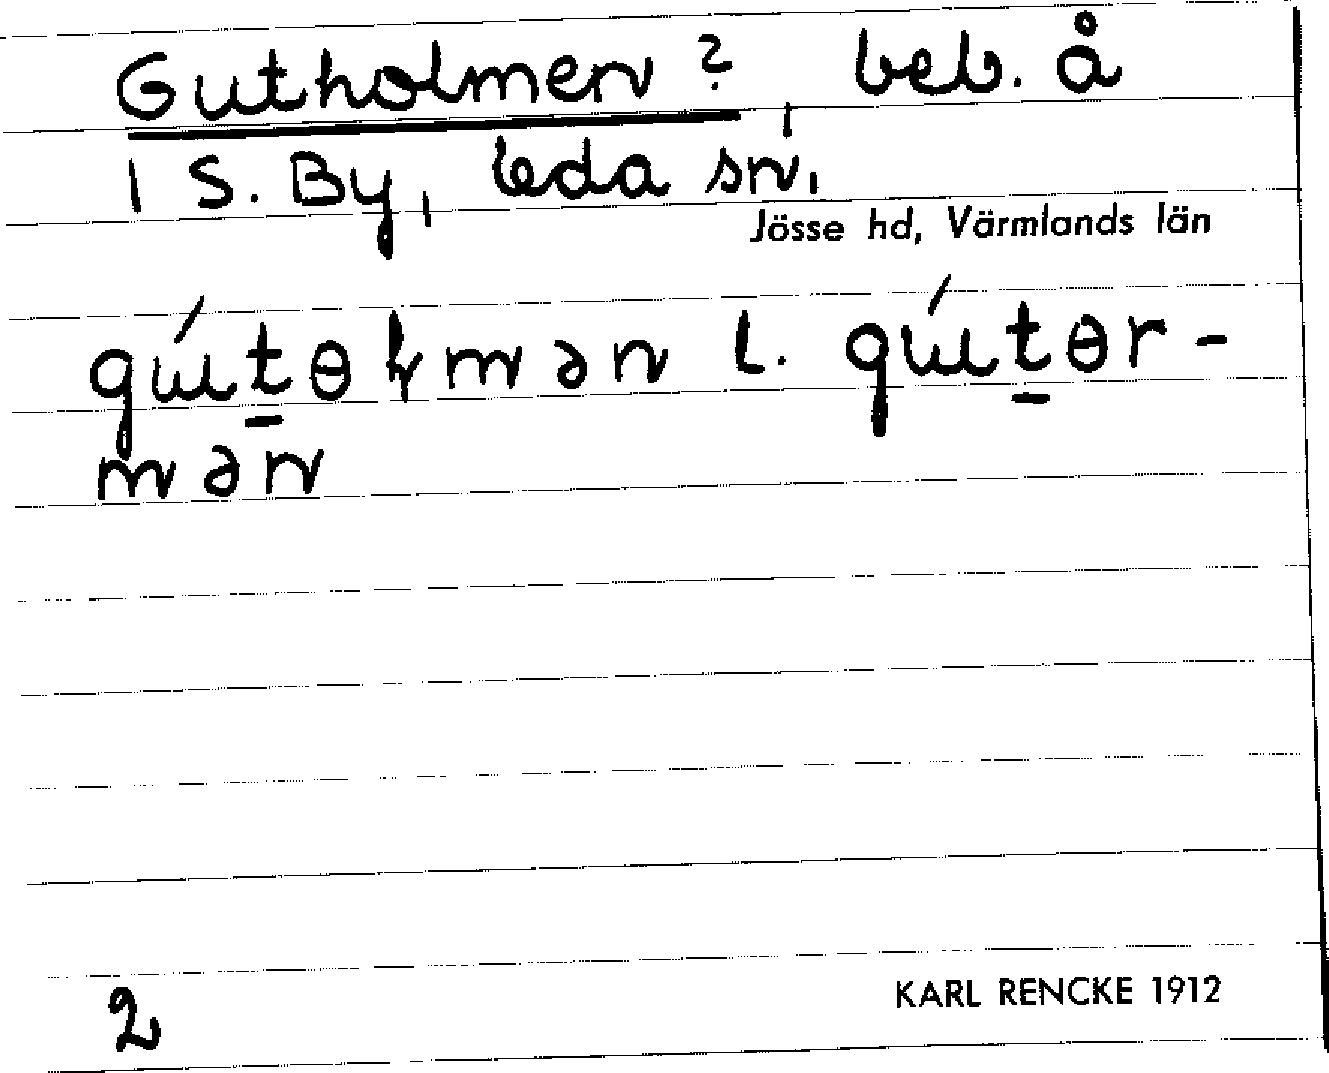 Gutholmen?, beb. å
1 S. By, Eda sn,
Jösse hd, Värmlands län
gɯ́t̠ɵɽmən l. gɯ́t̠ɵr-
mən
2
KARL RENCKE 1912